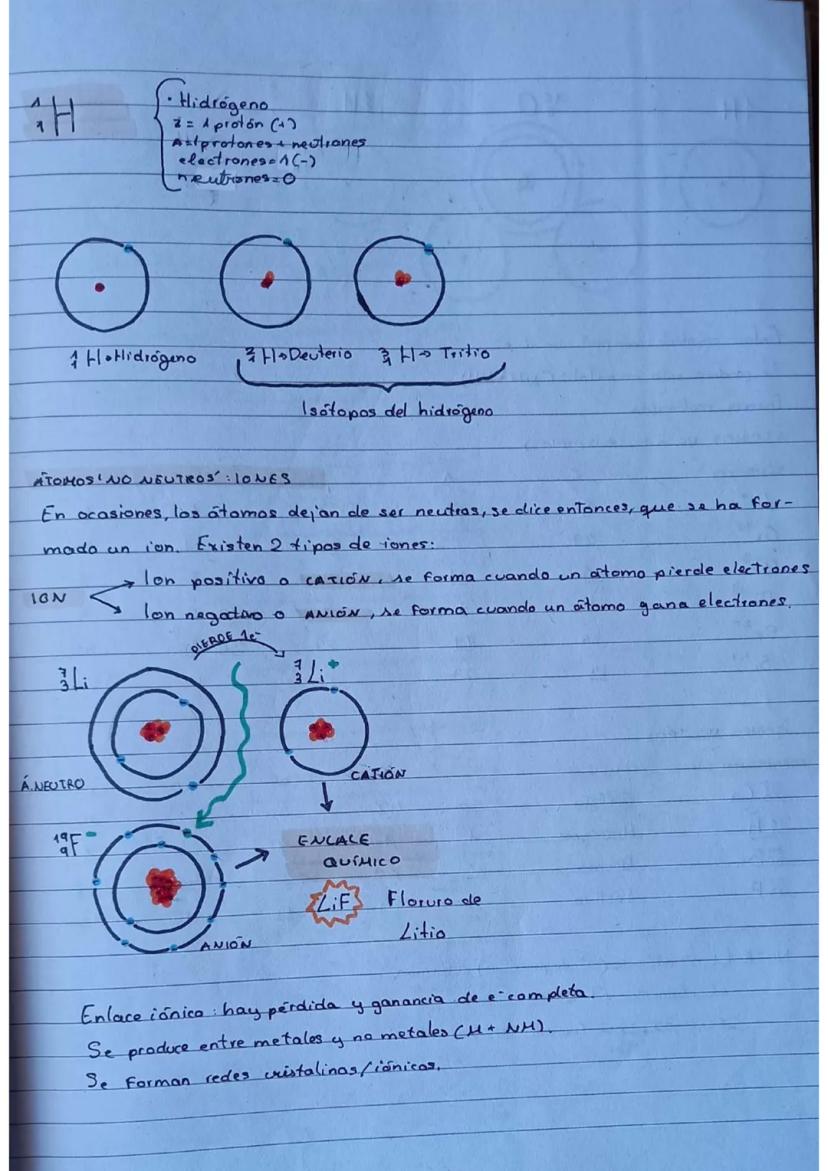 1 1 H
· Hidrógeno
z = 1 protón (+)
A = protones + neutrones
electrones = 1 (-)
neutrones = 0
1 1 H → Hidrógeno 2 1 H → Deuterio 3 1 H → Tritio
Isótopos del hidrógeno
ÁTOMOS 'NO NEUTROS': IONES
En ocasiones, los átomos dejan de ser neutros, se dice entonces, que se ha for-
mado un ion. Existen 2 tipos de iones:
ION
Ion positivo o CATIÓN, se forma cuando un átomo pierde electrones
Ion negativo o ANIÓN, se forma cuando un átomo gana electrones.
PIERDE 1e-
7 3 Li 7 3 Li +
Á. NEUTRO
CATIÓN
19 9 F -
ENLACE
QUÍMICO
LiF Floruro de
Litio
ANIÓN
Enlace iónico: hay pérdida y ganancia de e- completa.
Se produce entre metales y no metales (M + NM).
Se forman redes cristalinas/iónicas.